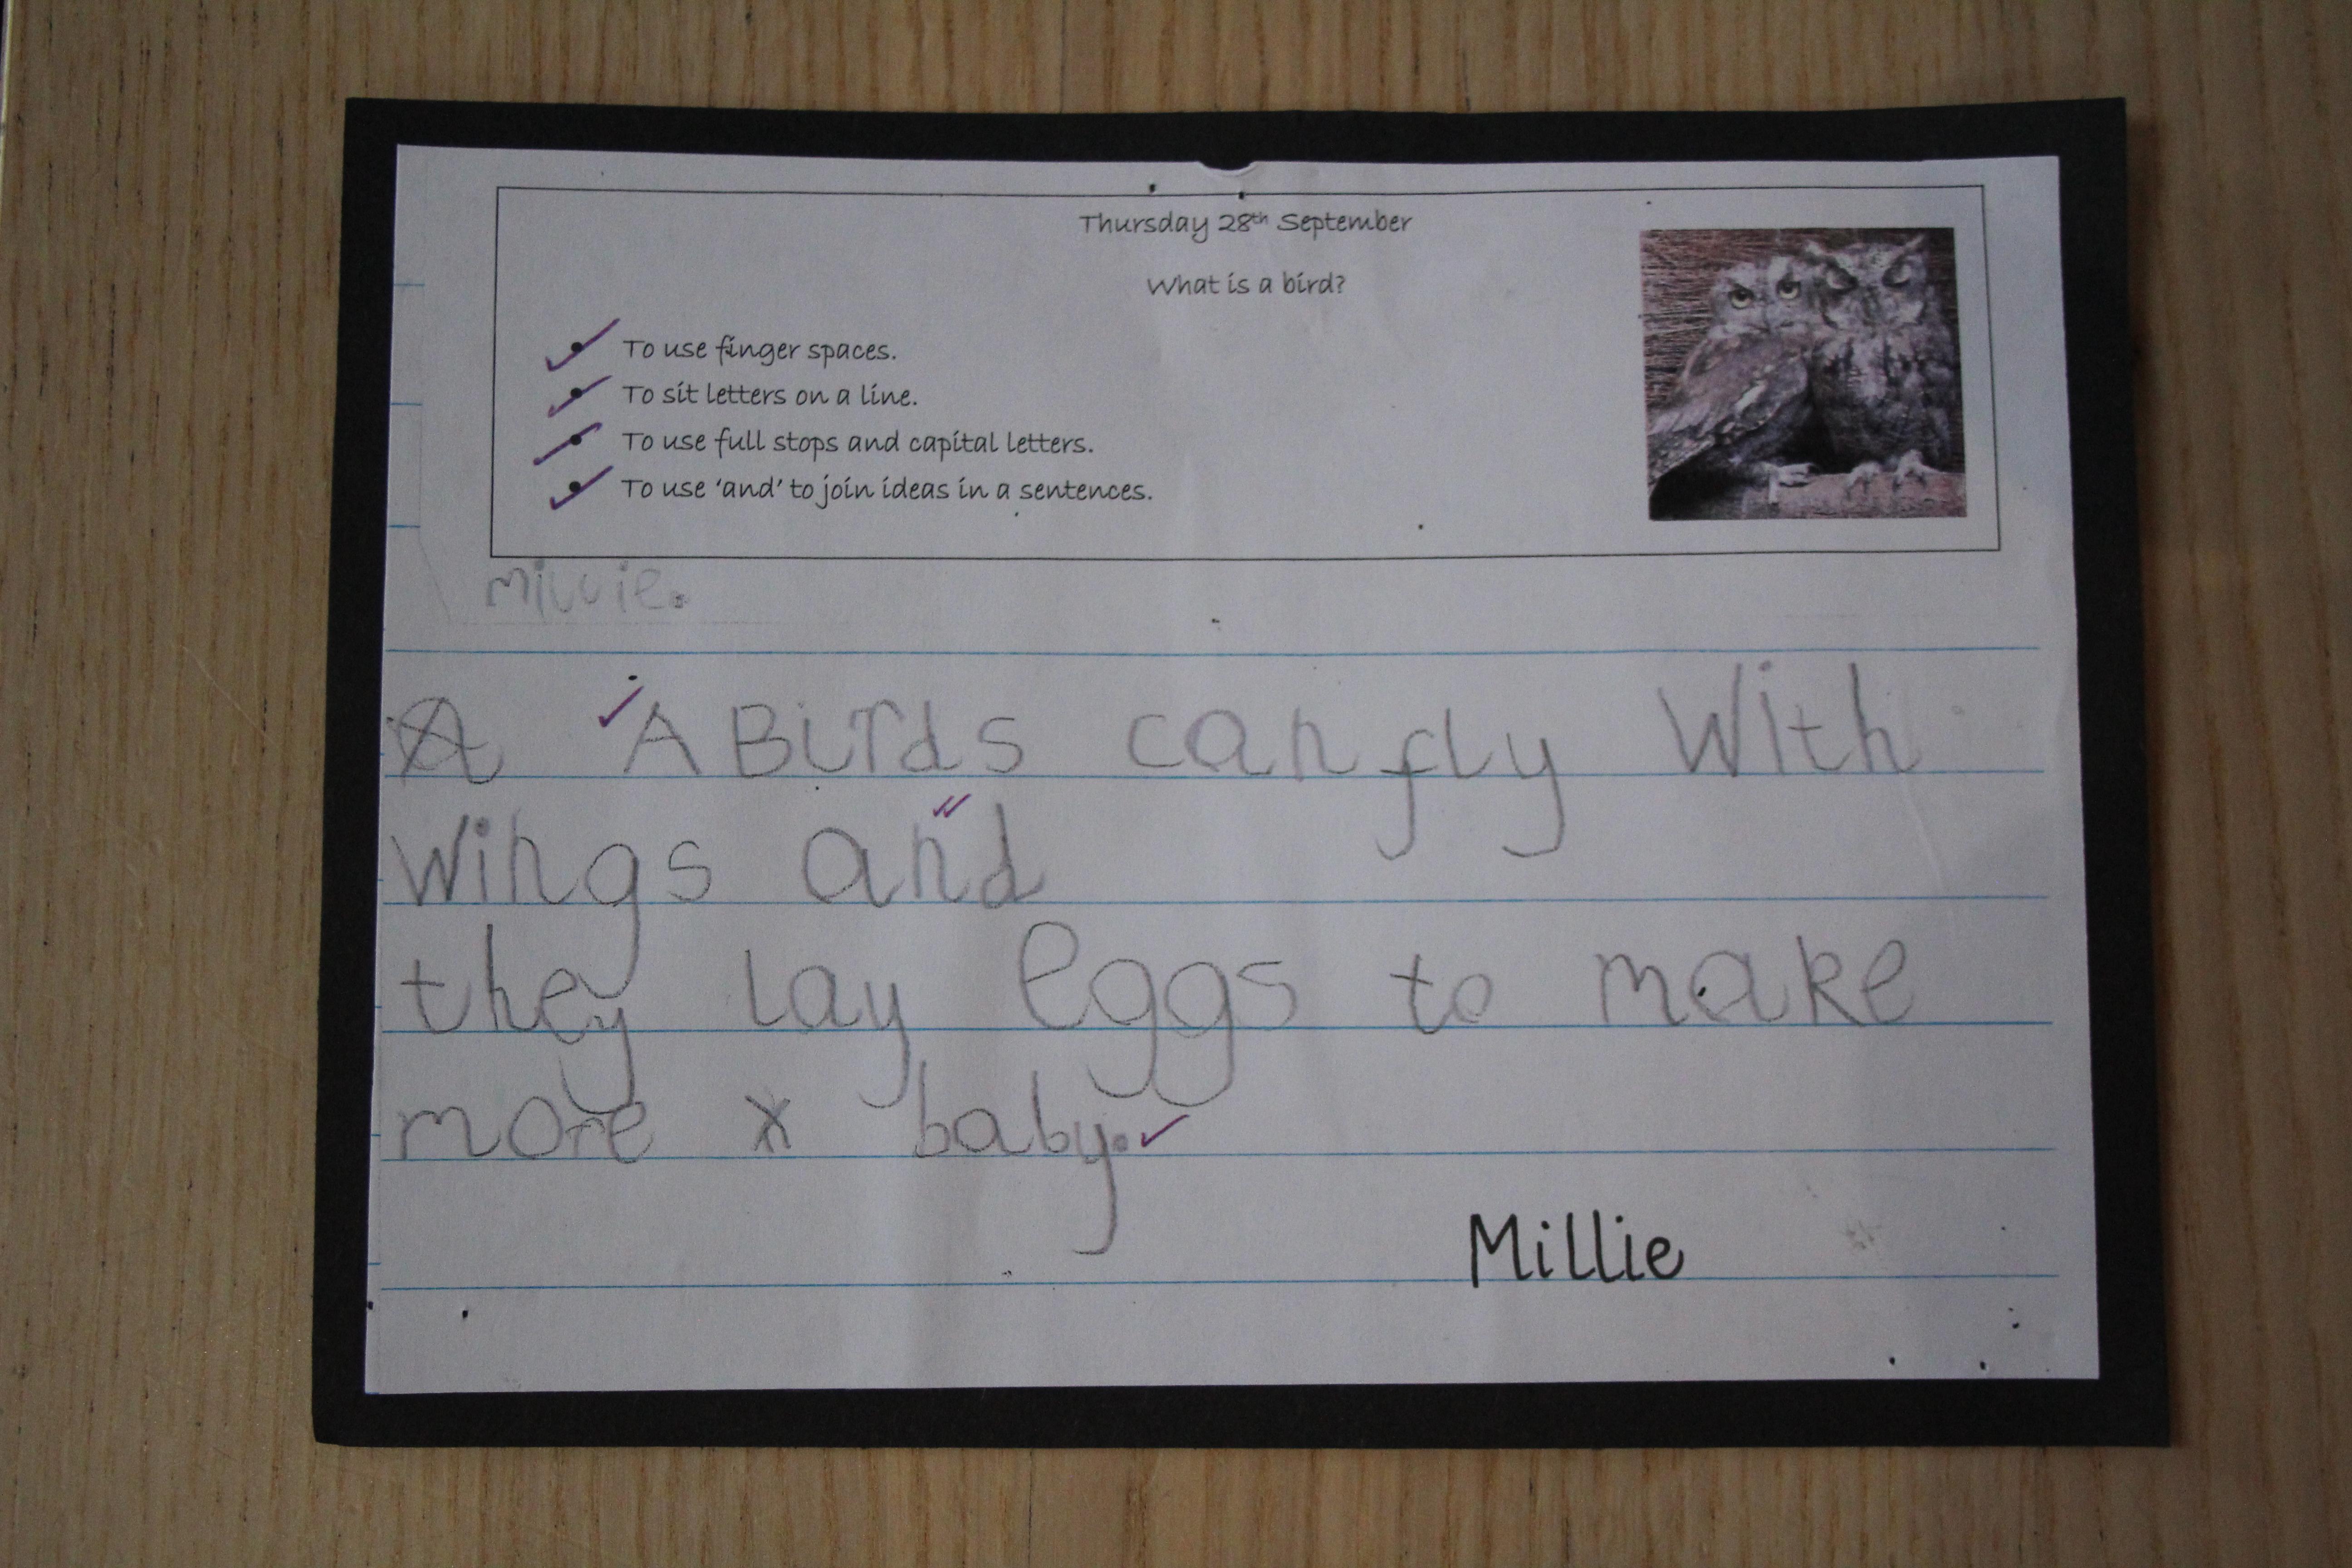 Thursday 28th September
What is a bird?
• To use finger spaces.
• To sit letters on a line.
• To use full stops and capital letters.
• To use 'and' to join ideas in a sentences.
Millie.
A ABirds can fly With
wings and
they lay eggs to make
more x baby.
Millie